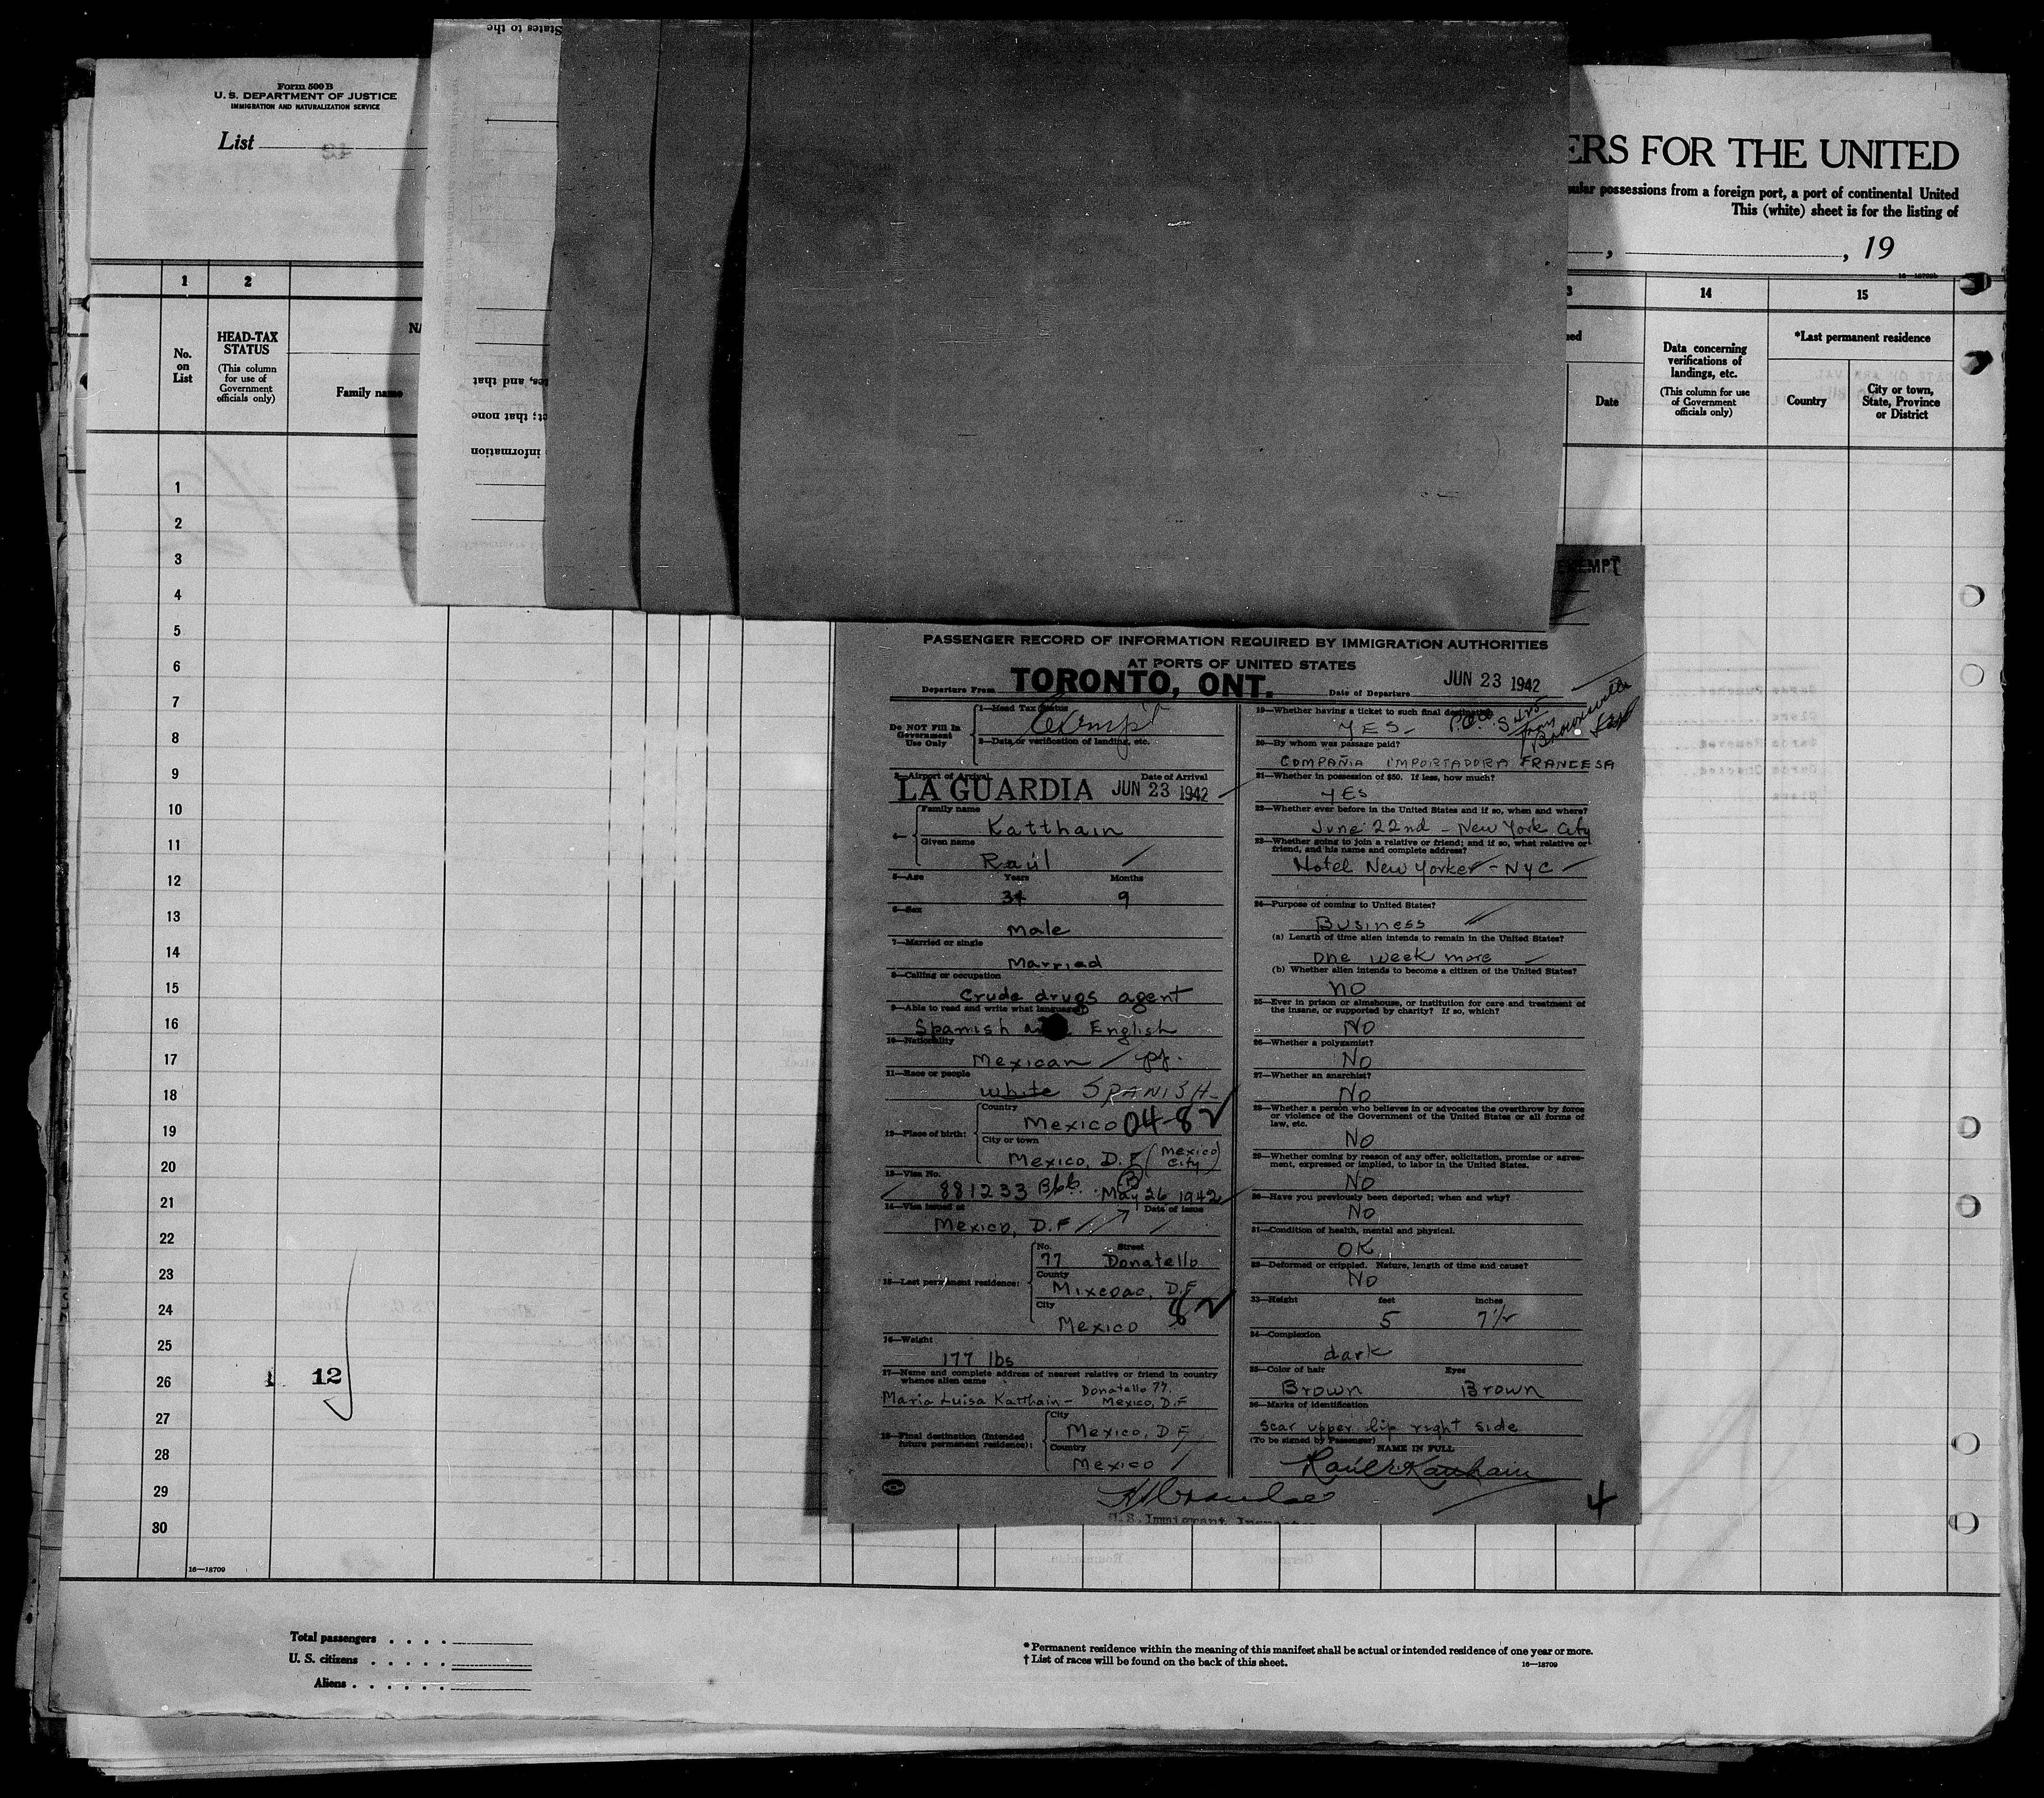 States to the
Form 500 B
U. S. DEPARTMENT OF JUSTICE
IMMIGRATION AND NATURALIZATION SERVICE
List
ERS FOR THE UNITED
possessions from a foreign port, a port of continental United
This (white) sheet is for the listing of
, 19
1 2
14 15
No. on List
HEAD-TAX STATUS
(This column for use of Government officials only)
Family name
Date
Data concerning verifications of landings, etc.
(This column for use of Government officials only)
*Last permanent residence
Country
City or town, State, Province or District
and that
that none
information
1
2
3
4
5
6
7
8
9
10
11
12
13
14
15
16
17
18
19
20
21
22
23
24
25
26
27
28
29
30
12
16—18709
PASSENGER RECORD OF INFORMATION REQUIRED BY IMMIGRATION AUTHORITIES
AT PORTS OF UNITED STATES
Departure From TORONTO, ONT. Date of Departure JUN 23 1942
Do NOT Fill In Government Use Only
1—Head Tax Status
Exempt
2—Data or verification of landing, etc.
3—Airport of Arrival Date of Arrival
LA GUARDIA JUN 23 1942
4—
Family name
Katthain
Given name
Raúl
5—Age Years Months
34 9
6—Sex
Male
7—Married or single
Married
8—Calling or occupation
Crude drugs agent
9—Able to read and write what language
Spanish English
10—Nationality
Mexican
11—Race or people
white SPANISH
12—Place of birth:
Country
Mexico 04-8
City or town
Mexico, D.F (Mexico City)
13—Visa No.
881233 May 26 1942
14—Visa issued at Date of issue
Mexico, D.F
15—Last permanent residence:
No. Street
77 Donatello
County
Mixcoac, D.F
City
Mexico 8
16—Weight
177 lbs
17—Name and complete address of nearest relative or friend in country
whence alien came
Donatello 77.
Maria Luisa Katthain - Mexico, D.F
18—Final destination (Intended future permanent residence):
City
Mexico, D.F
Country
Mexico
19—Whether having a ticket to such final destination
YES - from Brownsville
20—By whom was passage paid?
COMPAÑIA IMPORTADORA FRANCESA
21—Whether in possession of $50. If less, how much?
YES
22—Whether ever before in the United States and if so, when and where?
June 22nd - New York City
23—Whether going to join a relative or friend; and if so, what relative or
friend, and his name and complete address?
Hotel New Yorker - NYC
24—Purpose of coming to United States?
Business
(a) Length of time alien intends to remain in the United States?
One week more
(b) Whether alien intends to become a citizen of the United States?
no
25—Ever in prison or almshouse, or institution for care and treatment of
the insane, or supported by charity? If so, which?
No
26—Whether a polygamist?
No
27—Whether an anarchist?
No
28—Whether a person who believes in or advocates the overthrow by force
or violence of the Government of the United States or all forms of
law, etc.
No
29—Whether coming by reason of any offer, solicitation, promise or agree-
ment, expressed or implied, to labor in the United States.
No
30—Have you previously been deported; when and why?
No
31—Condition of health, mental and physical.
OK
32—Deformed or crippled. Nature, length of time and cause?
No
33—Height feet inches
5 7½
34—Complexion
dark
35—Color of hair Eyes
Brown Brown
36—Marks of identification
scar upper lip right side
(To be signed by Passenger) NAME IN FULL
Raúl Katthain
U.S. Immigrant Inspector
4
Total passengers . . . .
U. S. citizens . . . . .
Aliens . . . . . .
* Permanent residence within the meaning of this manifest shall be actual or intended residence of one year or more.
† List of races will be found on the back of this sheet.
16—18709